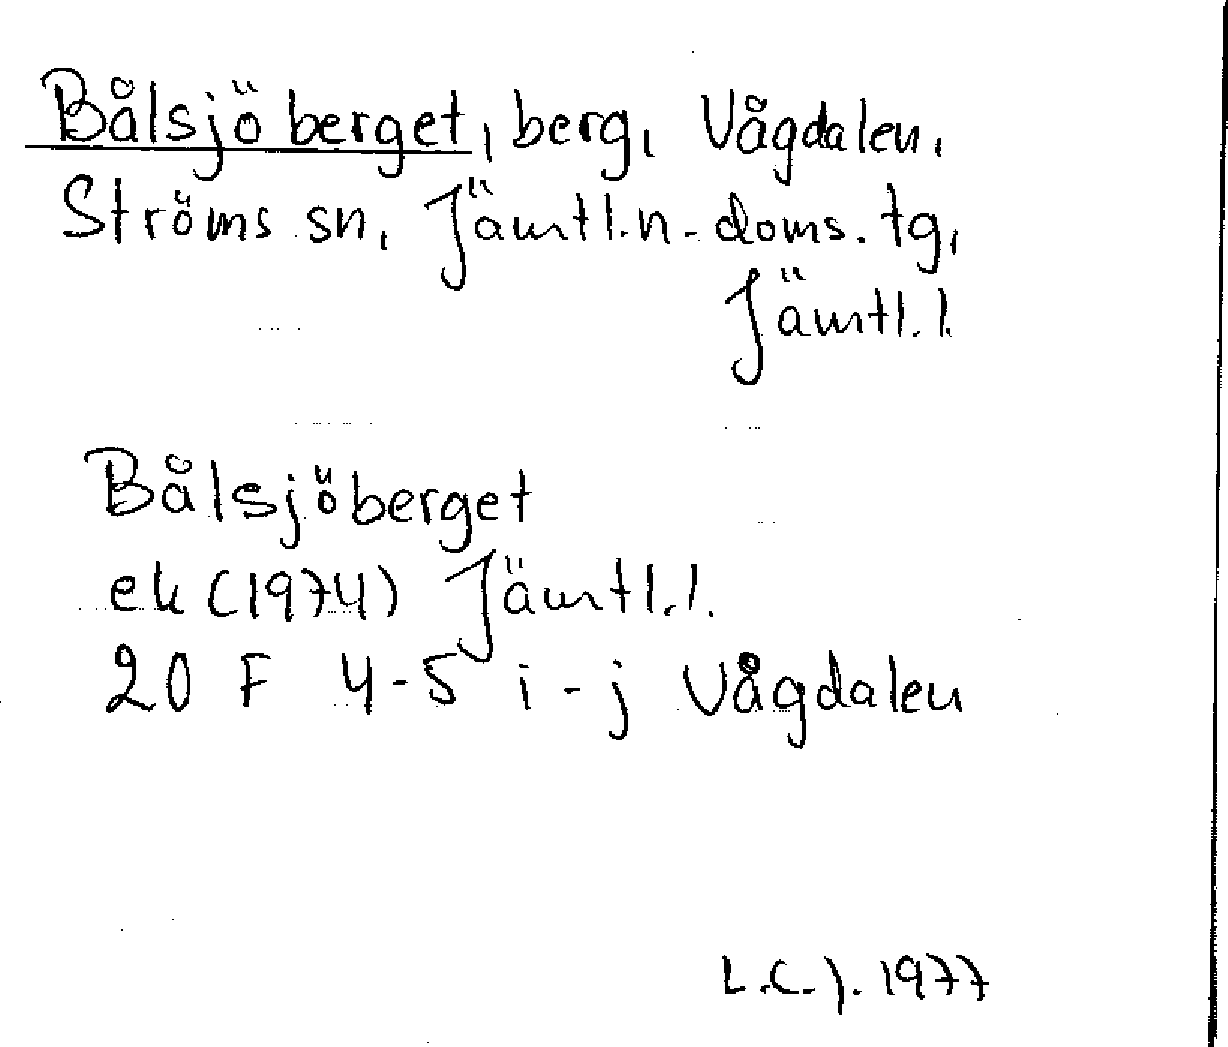 Bålsjöberget, berg, Vågdalen,
Ströms sn, Jämtl.n. doms. tg,
Jämtl.l.
Bålsjöberget
ek (1974) Jämtl.l.
20 F 4-5 i-j Vågdalen
L.C.J. 1977